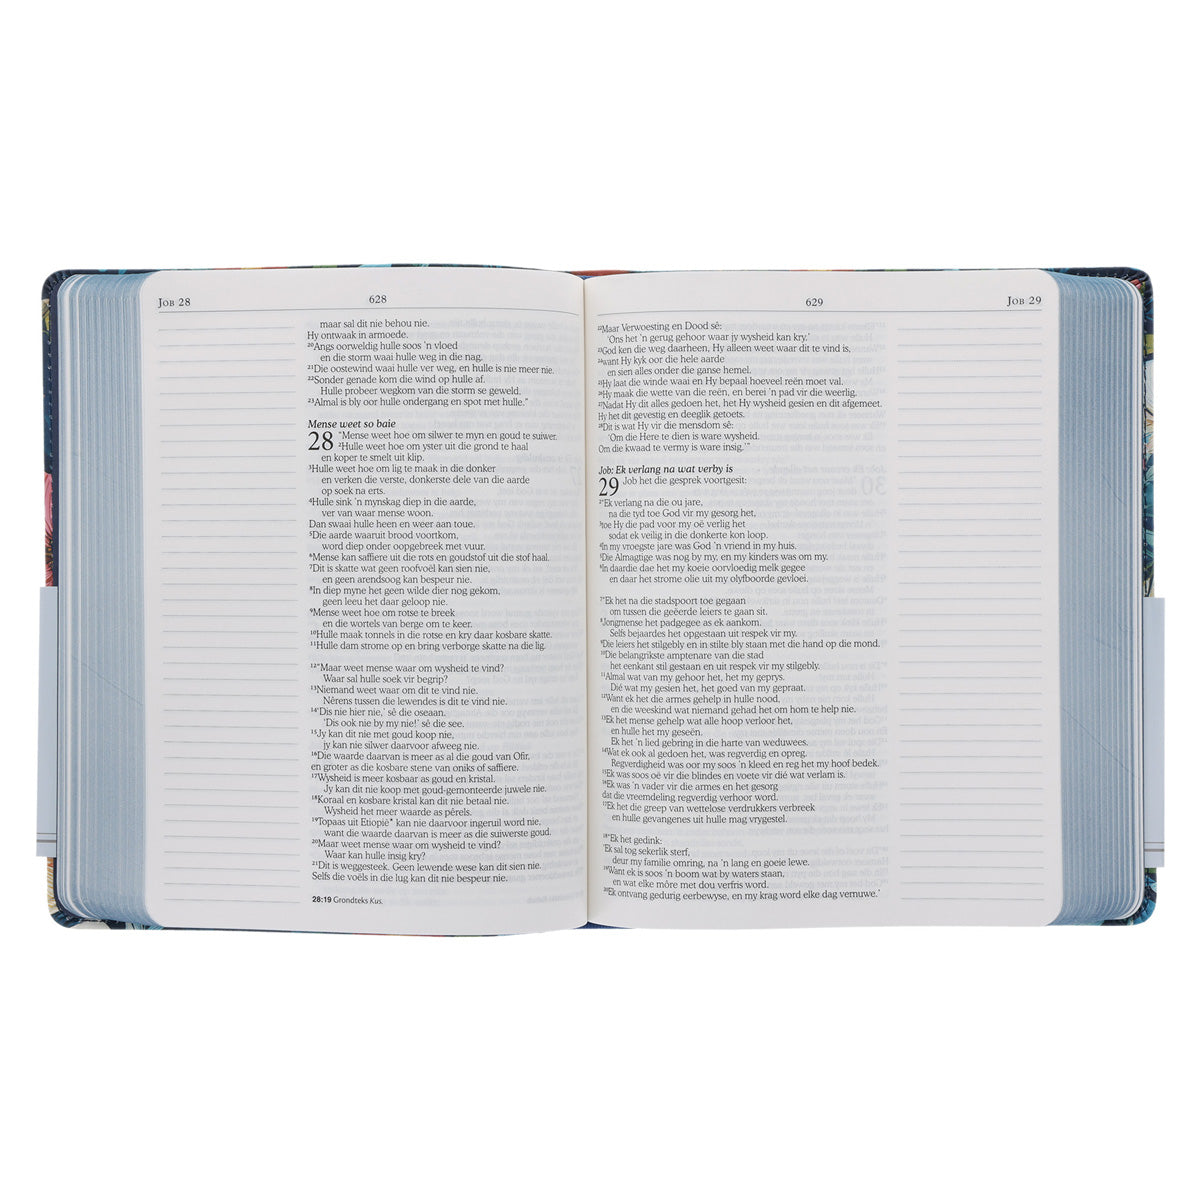 JOB 28
628
maar sal dit nie behou nie.
Hy ontwaak in armoede.
20Angs oorweldig hulle soos 'n vloed
en die storm waai hulle weg in die nag.
21Die oostewind waai hulle ver weg, en hulle is nie meer nie.
22Sonder genade kom die wind op hulle af.
Hulle probeer wegkom van die storm se geweld.
23Almal is bly oor hulle ondergang en spot met hulle.”
Mense weet so baie
28 “Mense weet hoe om silwer te myn en goud te suiwer.
2Hulle weet hoe om yster uit die grond te haal
en koper te smelt uit klip.
3Hulle weet hoe om lig te maak in die donker
en verken die verste, donkerste dele van die aarde
op soek na erts.
4Hulle sink 'n mynskag diep in die aarde,
ver van waar mense woon.
Dan swaai hulle heen en weer aan toue.
5Die aarde waaruit brood voortkom,
word diep onder oopgebreek met vuur.
6Mense kan saffiere uit die rots en goudstof uit die stof haal.
7Dit is skatte wat geen roofvoël kan sien nie,
en geen arendsoog kan bespeur nie.
8In diep myne het geen wilde dier nog gekom,
geen leeu het daar geloop nie.
9Mense weet hoe om rotse te breek
en die wortels van berge om te keer.
10Hulle maak tonnels in die rotse en kry daar kosbare skatte.
11Hulle dam strome op en bring verborge skatte na die lig.
12“Maar weet mense waar om wysheid te vind?
Waar sal hulle soek vir begrip?
13Niemand weet waar om dit te vind nie.
Nêrens tussen die lewendes is dit te vind nie.
14‘Dis nie hier nie,’ sê die oseaan.
‘Dis ook nie by my nie!’ sê die see,
15Jy kan dit nie met goud koop nie,
jy kan nie silwer daarvoor afweeg nie.
16Die waarde daarvan is meer as al die goud van Ofir,
en groter as die kosbare stene van oniks of saffiere.
17Wysheid is meer kosbaar as goud en kristal.
Jy kan dit nie koop met goud-gemonteerde juwele nie.
18Koraal en kosbare kristal kan dit nie betaal nie.
Wysheid het meer waarde as pêrels.
19Topaas uit Etiopië* kan nie daarvoor ingeruil word nie,
want die waarde daarvan is meer as die suiwerste goud.
20Maar weet mense waar om wysheid te vind?
Waar kan hulle insig kry?
21Dit is weggesteek. Geen lewende wese kan dit sien nie.
Selfs die voëls in die lug kan dit nie bespeur nie.
28:19 Grondteks Kus.
629
JOB 29
22Maar Verwoesting en Dood sê:
‘Ons het 'n gerug gehoor waar jy wysheid kan kry.’
23God ken die weg daarheen, Hy alleen weet waar dit te vind is,
24want Hy kyk oor die hele aarde
en sien alles onder die ganse hemel.
25Hy laat die winde waai en Hy bepaal hoeveel reën moet val.
26Hy maak die wette van die reën, en berei 'n pad vir die weerlig,
27Nadat Hy dit alles gedoen het, het Hy wysheid gesien en dit afgemeet.
Hy het dit gevestig en deeglik getoets.
28Dit is wat Hy vir die mensdom sê:
‘Om die Here te dien is ware wysheid.
Om die kwaad te vermy is ware insig.’”
Job: Ek verlang na wat verby is
29 Job het die gesprek voortgesit:
2“Ek verlang na die ou jare,
na die tyd toe God vir my gesorg het,
3toe Hy die pad voor my oë verlig het
sodat ek veilig in die donkerte kon loop.
4In my vroegste jare was God 'n vriend in my huis.
5Die Almagtige was nog by my, en my kinders was om my.
6In daardie dae het my koeie oorvloedig melk gegee
en daar het strome olie uit my olyfboorde gevloei.
7“Ek het na die stadspoort toe gegaan
om tussen die geëerde leiers te gaan sit.
8Jongmense het padgegee as ek aankom.
Selfs bejaardes het opgestaan uit respek vir my.
9Die leiers het stilgebly en in stilte bly staan met die hand op die mond.
10Die belangrikste amptenare van die stad
het eenkant stil gestaan en uit respek vir my stilgebly.
11Almal wat van my gehoor het, het my geprys.
Dié wat my gesien het, het goed van my gepraat.
12Want ek het die armes gehelp in hulle nood,
en die weeskind wat niemand gehad het om hom te help nie.
13Ek het mense gehelp wat alle hoop verloor het,
en hulle het my geseën.
Ek het 'n lied gebring in die harte van weduwees.
14Wat ek ook al gedoen het, was regverdig en opreg.
Regverdigheid was oor my soos 'n kleed en reg het my hoof bedek.
15Ek was soos oë vir die blindes en voete vir dié wat verlam is.
16Ek was 'n vader vir die armes en het gesorg
dat die vreemdeling regverdig verhoor word.
17Ek het die greep van wettelose verdrukkers verbreek
en hulle gevangenes uit hulle mag vrygestel.
18“Ek het gedink:
‘Ek sal tog sekerlik sterf,
deur my familie omring, na 'n lang en goeie lewe.
19Want ek is soos 'n boom wat by waters staan,
en wat elke môre met dou verfris word.
20Ek ontvang gedurig eerbewyse, en my krag word elke dag vernuwe.’